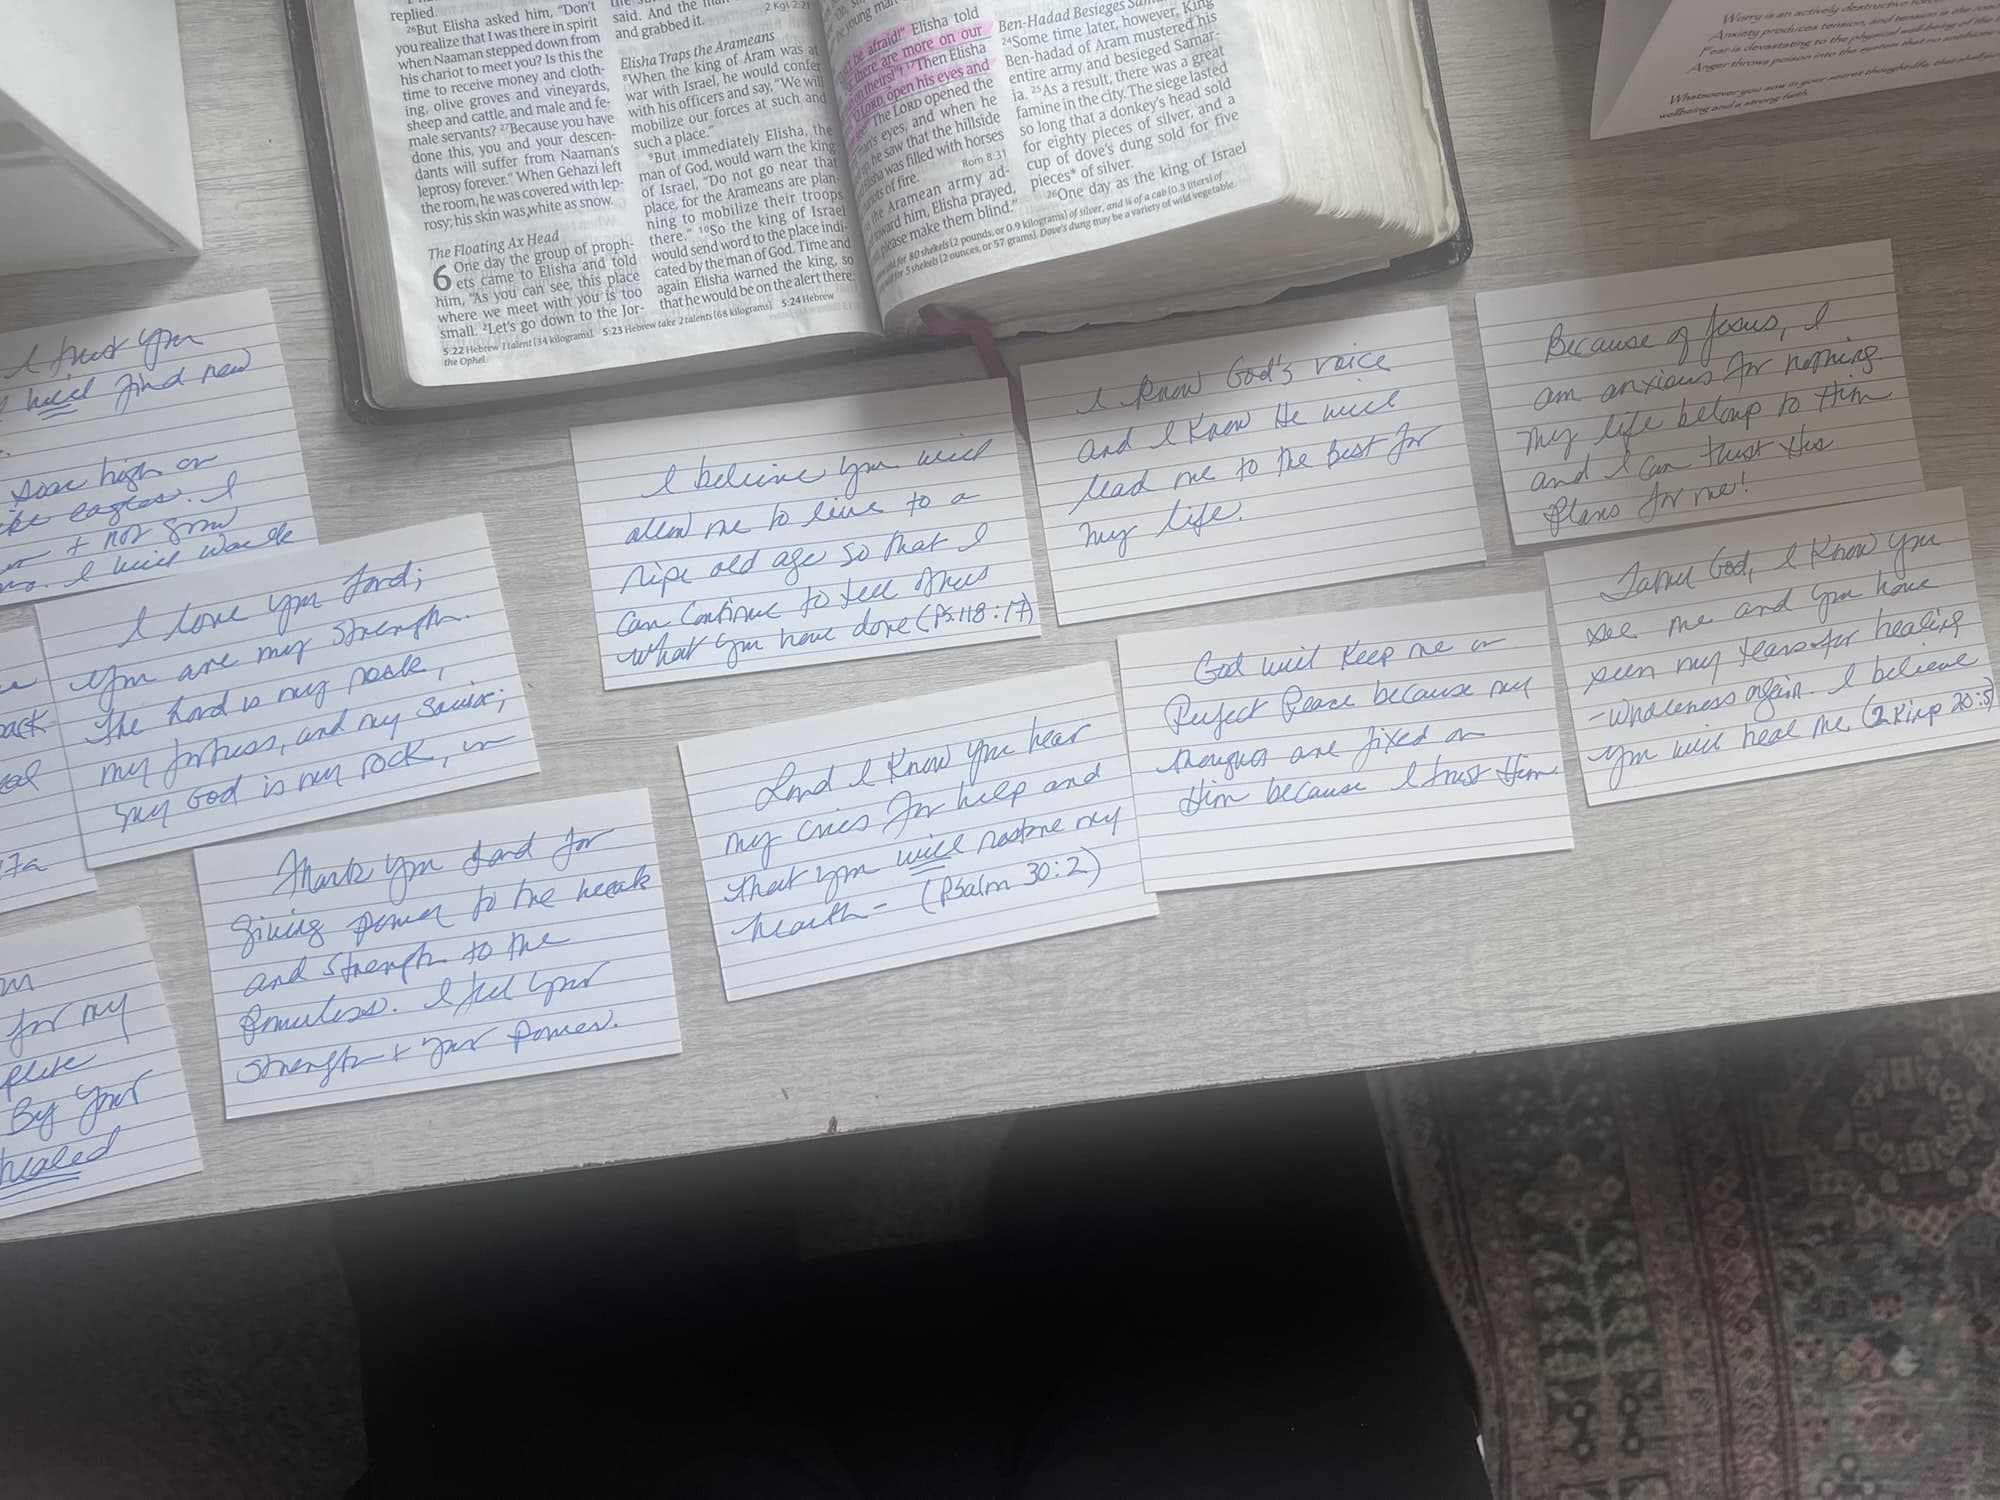 replied.
²⁶But Elisha asked him, "Don't
you realize that I was there in spirit
when Naaman stepped down from
his chariot to meet you? Is this the
time to receive money and cloth-
ing, olive groves and vineyards,
sheep and cattle, and male and fe-
male servants? ²⁷Because you have
done this, you and your descen-
dants will suffer from Naaman's
leprosy forever." When Gehazi left
the room, he was covered with lep-
rosy; his skin was white as snow.
The Floating Ax Head
6 One day the group of proph-
ets came to Elisha and told
him, "As you can see, this place
where we meet with you is too
small. ²Let's go down to the Jor-
5:22 Hebrew 1 talent [34 kilograms]. 5:23 Hebrew take 2 talents [68 kilograms]. 5:24 Hebrew
the Ophel.
said. And the man
and grabbed it.
2 Kgs 2:21
Elisha Traps the Arameans
⁸When the king of Aram was at
war with Israel, he would confer
with his officers and say, "We will
mobilize our forces at such and
such a place."
⁹But immediately Elisha, the
man of God, would warn the king
of Israel, "Do not go near that
place, for the Arameans are plan-
ning to mobilize their troops
there." ¹⁰So the king of Israel
would send word to the place indi-
cated by the man of God. Time and
again Elisha warned the king, so
that he would be on the alert there.
the young man
be afraid!" Elisha told
there are more on our
on theirs!" ¹⁷Then Elisha
O LORD, open his eyes and
The LORD opened the
man's eyes, and when he
he saw that the hillside
Elisha was filled with horses
of fire.
Rom 8:31
the Aramean army ad-
toward him, Elisha prayed,
please make them blind."
Ben-Hadad Besieges
²⁴Some time later, however, King
Ben-hadad of Aram mustered his
entire army and besieged Samar-
ia. ²⁵As a result, there was a great
famine in the city. The siege lasted
so long that a donkey's head sold
for eighty pieces of silver, and a
cup of dove's dung sold for five
pieces* of silver.
²⁶One day as the king of Israel
for 80 shekels [2 pounds, or 0.9 kilograms] of silver, and ¼ of a cab [0.3 liters] of
for 5 shekels [2 ounces, or 57 grams]. Dove's dung may be a variety of wild vegetable.
Worry is an actively destructive
Anxiety produces tension, and tension is the
Fear is devastating to the physical well-being of the
Anger throws poison into the system that no
Whatsoever you sow in your secret thought-life, that shall
wellbeing and a strong faith.
I trust You
I will find new
soar high on
like eagles. I
+ not grow
I will walk
I love you Lord;
You are my strength.
The Lord is my rock,
my fortress, and my savior;
my God is my rock, in
Thank You Lord for
giving power to the weak
and strength to the
powerless. I feel your
strength + your power.
for my
By Your
healed
I believe You will
allow me to live to a
ripe old age so that I
can continue to tell others
what you have done (Ps. 118:17)
Lord I know you hear
my cries for help and
that you will restore my
health - (Psalm 30:2)
I know God's voice
and I know He will
lead me to the best for
my life.
God will keep me in
Perfect Peace because my
thoughts are fixed on
Him because I trust Him
Because of Jesus, I
am anxious for nothing.
My life belong to Him
and I can trust His
plans for me!
Father God, I know You
see me and you have
seen my tears for healing
- wholeness again. I believe
you will heal me. (2 King 20:5)